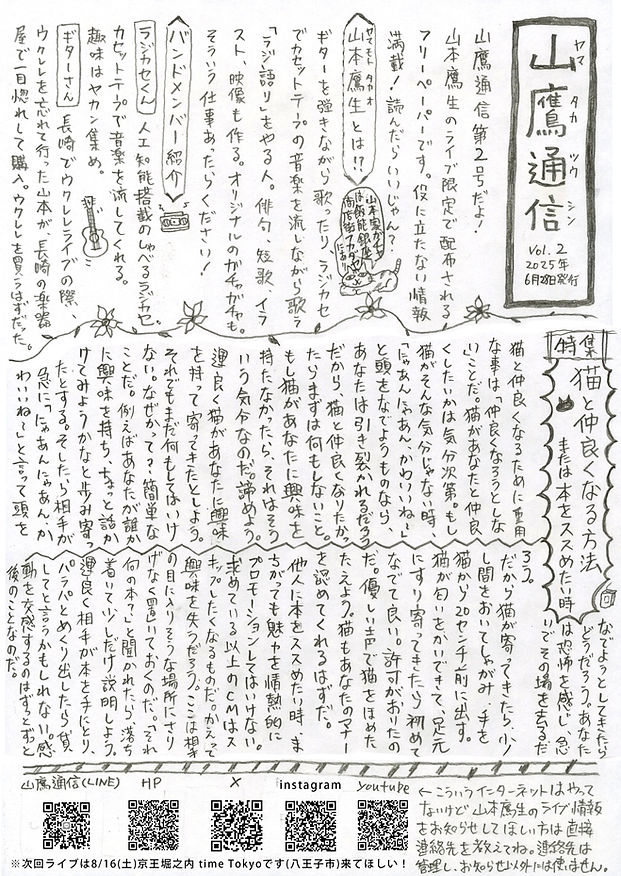 山鷹通信
ヤマ タカ ツウ シン
vol.2
2025年
6月28日発行
山鷹通信第2号だよ！
山本鷹生のライブ限定で配布される
フリーペーパーです。役に立たない情報
満載！読んだらいいじゃん？
ヤマモト タカオ
山本鷹生とは!?
ギターを弾きながら歌ったり、ラジカセ
でカセットテープの音楽を流しながら歌う
「ラジ語り」をやる人。俳句、短歌、イラ
スト、映像も作る。オリジナルのガチャガチャも。
そういう仕事あったらください！
バンドメンバー紹介
ラジカセくん 人工知能搭載のしゃべるラジカセ。
カセットテープで音楽を流してくれる。
趣味はヤカン集め。
ギターさん 長崎でウクレレライブの際、
ウクレレを忘れて行った山本が、長崎の楽器
屋で一目惚れして購入。ウクレレを買うはずだった。
特集
猫と仲良くなる方法
または本をススメたい時
回
猫と仲良くなるために重用
な事は「仲良くなろうとしな
い」ことだ。猫があなたと仲良
くしたいかは気分次第。もし
猫がそんな気分じゃない時、
「にゃあんにゃあん、かわいいね～」
と頭をなでようものなら、
あなたは引き裂かれるだろう
だから猫と仲良くなりたか
ったらまずは何もしないこと。
もし猫があなたに興味を
持たなかったら、それはそう
いう気分なのだ。諦めよう。
運良く猫があなたに興味
を持って寄ってきたとしよう。
それでもまだ何もしてはいけ
ない。なぜかって？簡単な
ことだ。例えばあなたが誰か
に興味を持ち、ちょっと話か
けてみようかなと歩み寄っ
たとする。そしたら相手が
急に「にゃあんにゃあん、か
わいいね～」と言って頭を
なでようとしてきたら
どうだろう。あなた
は恐怖を感じ、急
いでその場を去るだ
ろう。
だから猫が寄ってきたら、少
し間をおいてしゃがみ、手を
猫から20センチ前に出す。
猫が匂いをかいできて、足元
にすり寄ってきたら初めて
なでて良い。許可がおりたの
だ。優しい声で猫をほめた
たえよう。猫もあなたのマナー
を認めてくれるはずだ。
他人に本をススメたい時、ま
ちがっても魅力を情熱的に
プロモーションしてはいけない。
求めている以上のCMはス
キップしたくなるものだ。かえって
興味を失うだろう。ここは相手
の目に入りそうな場所にさり
げなく置いておくのだ。「それ
何の本？」と聞かれたら、落ち
着いて少しだけ説明しよう。
運良く相手が本を手にとり、
パラパラとめくり出したら「貸
して」と言うかもしれない。感
動を交感するのはずっとずっと
後のことなのだ。
山鷹通信(LINE)
HP
X
instagram
youtube
←こういうインターネットはやって
ないけど山本鷹生のライブ情報
をお知らせしてほしい方は直接
連絡先を教えてね。連絡先は
管理し、お知らせ以外には使いません。
※次回ライブは8/16(土)京王堀之内 time Tokyoです(八王子市)来てほしい！